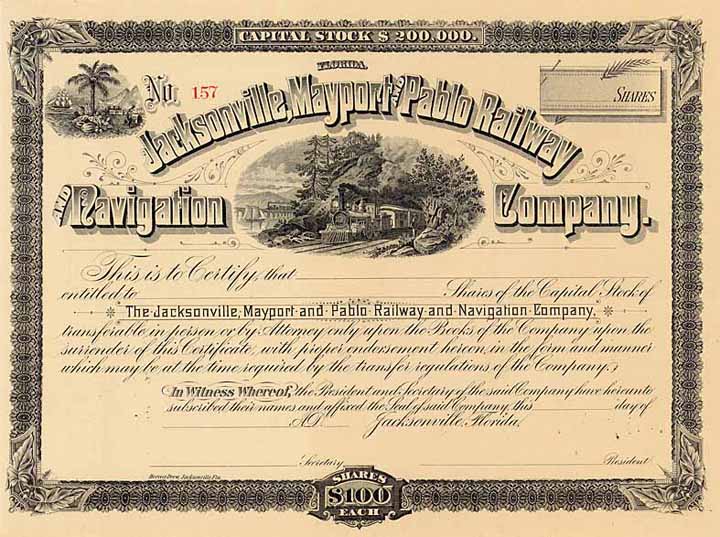 CAPITAL STOCK $ 200,000.
FLORIDA.
No. 157
SHARES
Jacksonville, Mayport and Pablo Railway
AND Navigation Company.
This is to Certify, that
entitled to Shares of the Capital Stock of
The Jacksonville, Mayport and Pablo Railway and Navigation Company,
transferable in person or by Attorney only upon the Books of the Company upon the
surrender of this Certificate, with proper endorsement hereon, in the form and manner
which may be at the time required by the transfer regulations of the Company.
In Witness Whereof, the President and Secretary of the said Company have hereunto
subscribed their names and affixed the Seal of said Company, this day of
A.D. Jacksonville, Florida.
Secretary President
Jacksonville, Fla.
SHARES
$100
EACH